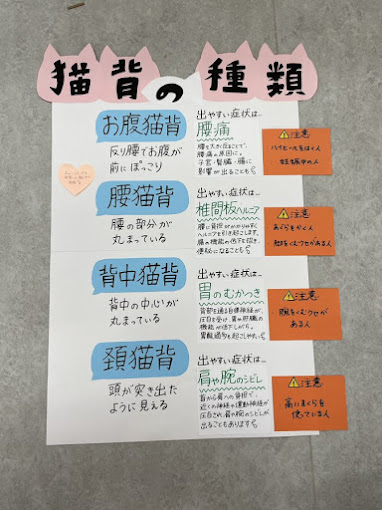 猫背の種類
お腹猫背
反り腰でお腹が
前にぽっこり
出やすい症状は…
腰痛
腰を大きく反ることで、
腰痛の原因に。
子宮・腎臓・腸に
影響が出ることも
⚠注意
ハイヒールをはく人
妊娠中の人
腰猫背
腰の部分が
丸まっている
出やすい症状は…
椎間板ヘルニア
腰に負担がかかりやすく
ヘルニアを引き起こします。
腸の機能の低下を招き、
便秘になることも
⚠注意
あぐらをかく人
足をくむクセがある人
背中猫背
背中の中心が
丸まっている
出やすい症状は…
胃のむかつき
背部を通る自律神経が
圧迫を受け、胃や肝臓の
機能が低下しがち。
胃酸過多を起こしやすい
⚠注意
腕をくむクセが
ある人
頚猫背
頭が突き出た
ように見える
出やすい症状は…
肩や腕のシビレ
首から肩への負担で、
近くの神経や運動神経が
圧迫され、肩や腕のシビレが
出ることもあります
⚠注意
高いまくらを
使っている人